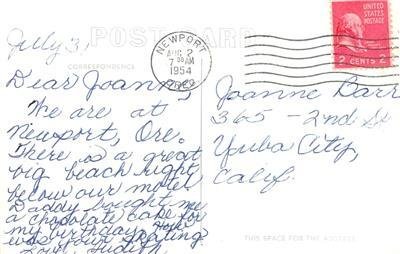 July 31
POST CARD
CORRESPONDENCE
NEWPORT
AUG 2
7 00 AM
1954
OREG.
UNITED STATES
POSTAGE
2 CENTS 2
Dear Joann
We are at
Newport, Ore.
There is a great
big beach right
below our motel
Daddy bought me
a chocolate cake for
my birthday. How
was your skating.
Love, Judith
Joanne Barr
365 - 2nd St
Yuba City,
Calif.
THIS SPACE FOR THE ADDRESS